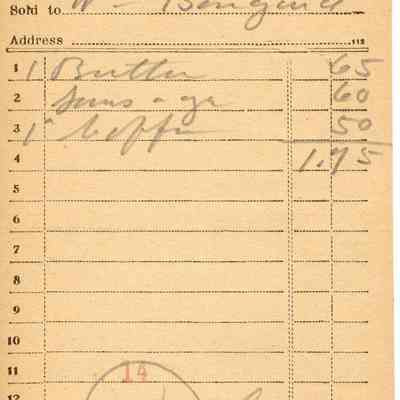 Sold to W
Address 112
1 1 Butter 65
2 Sausage 60
3 1" Coffee 50
4 1.75
5
6
7
8
9
10
11 14
12